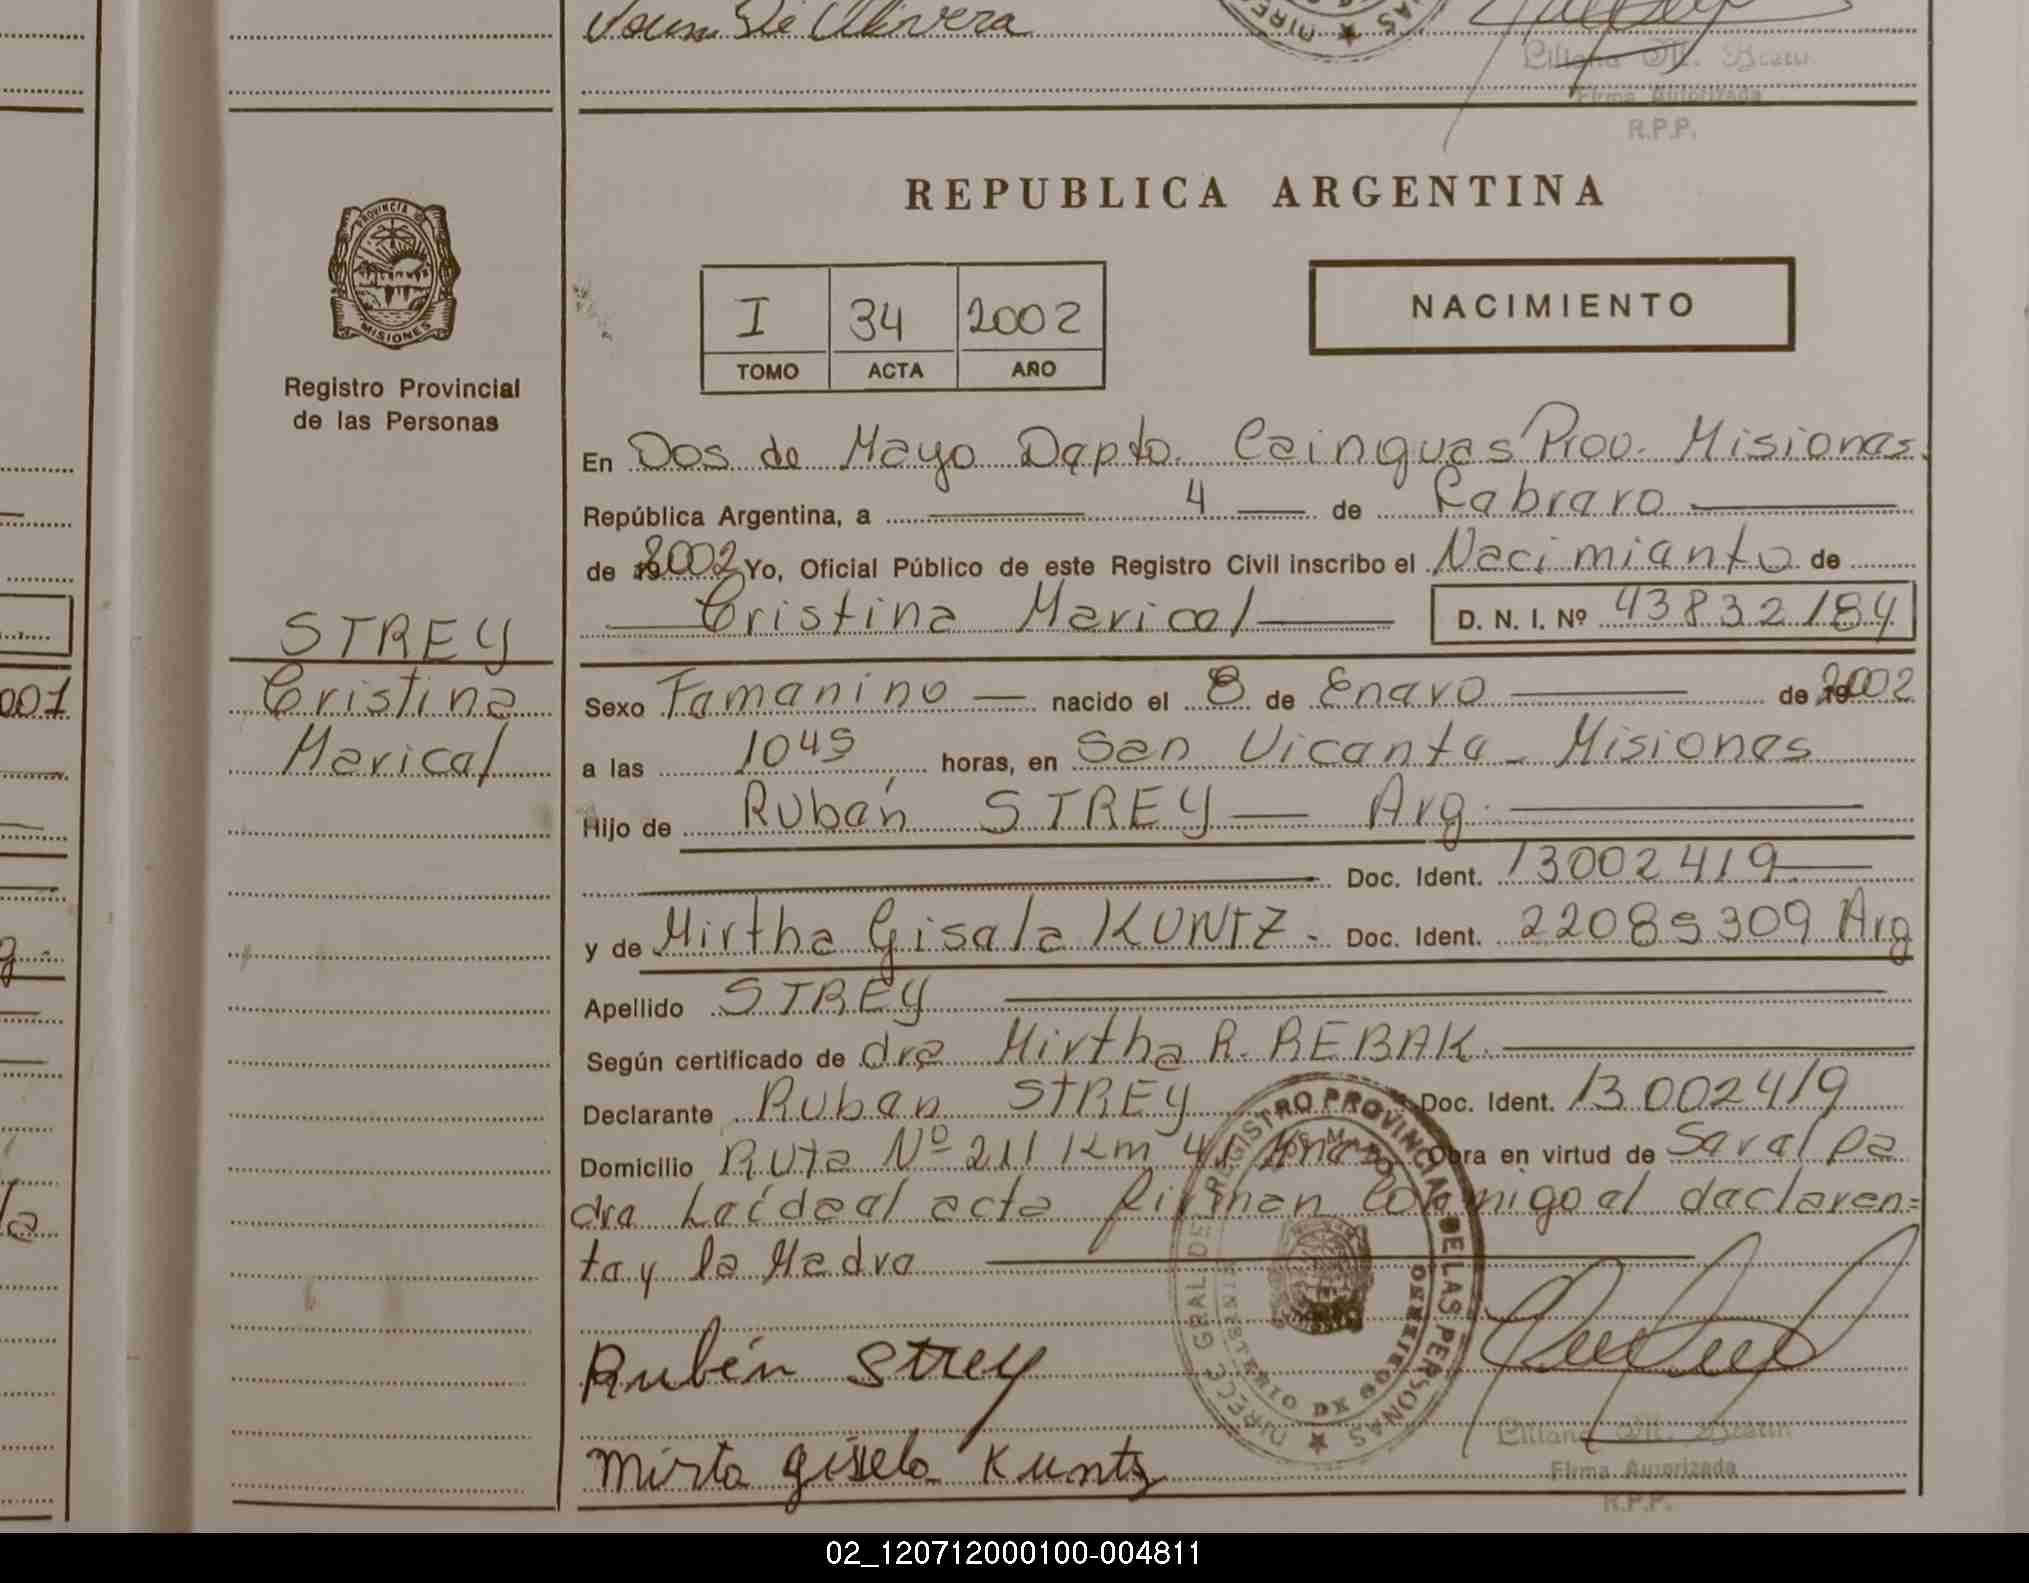 REPUBLICA ARGENTINA
PROVINCIA DE
MISIONES
Registro Provincial
de las Personas
I 34 2002
TOMO ACTA AÑO
NACIMIENTO
En Dos de Mayo Dapto. Cainguas Prov. Misiones.
República Argentina, a 4 de Febrero
de 2002 Yo, Oficial Público de este Registro Civil inscribo el Nacimiento de
Cristina Maricel D. N. I. Nº 43832184
STREY
Cristina
Maricel
Sexo Femenino nacido el 8 de Enero de 2002
a las 1045 horas, en San Vicente - Misiones
Hijo de Rubén STREY Arg.
Doc. Ident. 13002419
y de Mirtha Gisela KUNTZ - Doc. Ident. 22085309 Arg
Apellido STREY
Según certificado de dra Mirtha R. REBAK
Declarante Ruben STREY Doc. Ident. 13002419
Domicilio Ruta Nº 211 Km 41 Obra en virtud de Ser el pa
dre Leída el acta firman conmigo el declaren=
te y la Madre
Rubén Strey
Mirta gisela Kuntz
REGISTRO PROVINCIAL DE LAS PERSONAS
DIRECC. GRAL DE
MINISTERIO DE GOBIERNO
Firma Autorizada
R.P.P.
Firma Autorizada
R.P.P.
001
02_120712000100-004811